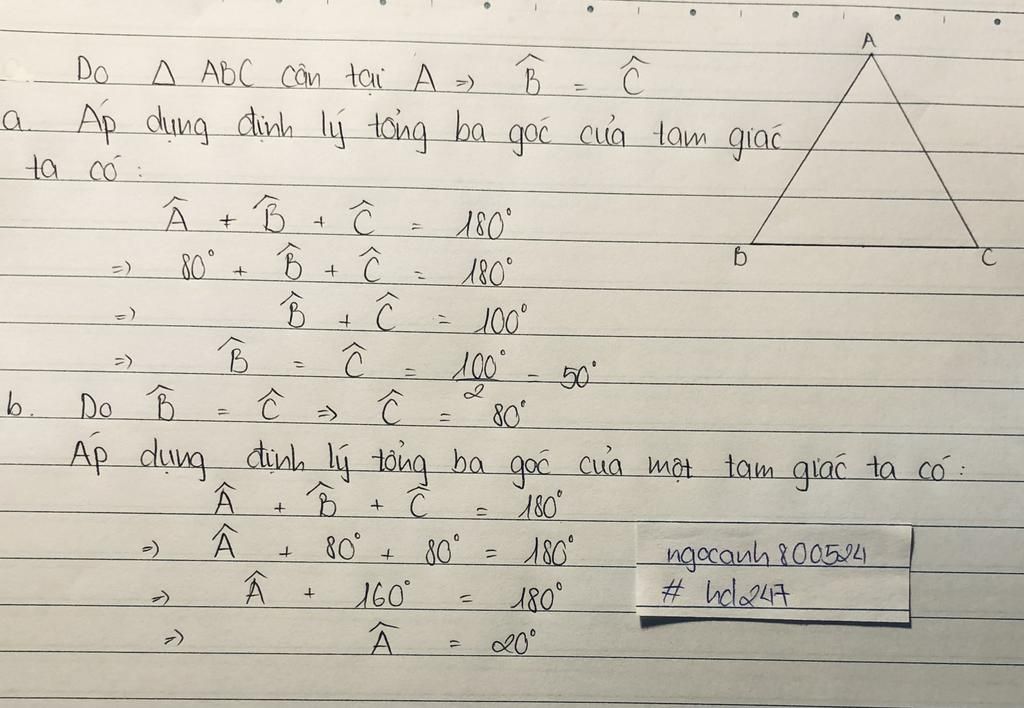 Do Δ ABC cân tại A => B̂ = Ĉ
a. Áp dụng định lý tổng ba góc của tam giác
ta có :
Â + B̂ + Ĉ = 180°
=> 80° + B̂ + Ĉ = 180°
=> B̂ + Ĉ = 100°
=> B̂ = Ĉ = 100°/2 = 50°
b. Do B̂ = Ĉ => Ĉ = 80°
Áp dụng định lý tổng ba góc của một tam giác ta có :
Â + B̂ + Ĉ = 180°
=> Â + 80° + 80° = 180°
=> Â + 160° = 180°
=> Â = 20°
A
B C
ngocanh800524
# hd247